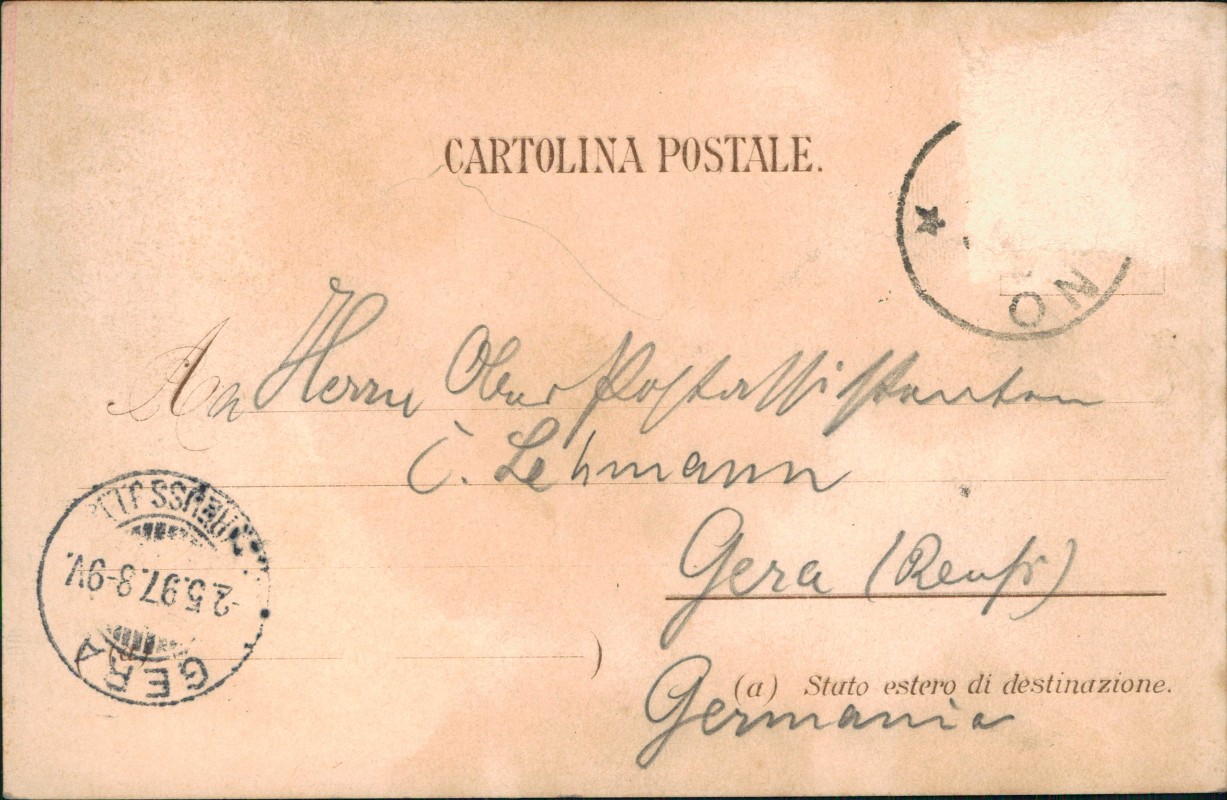 CARTOLINA POSTALE.
NO
A
An Herrn Ober Postassistenten
C. Lehmann
Gera (Reuss)
(a) Stato estero di destinazione.
Germania
GERA
2.5.97.8-9V.
)